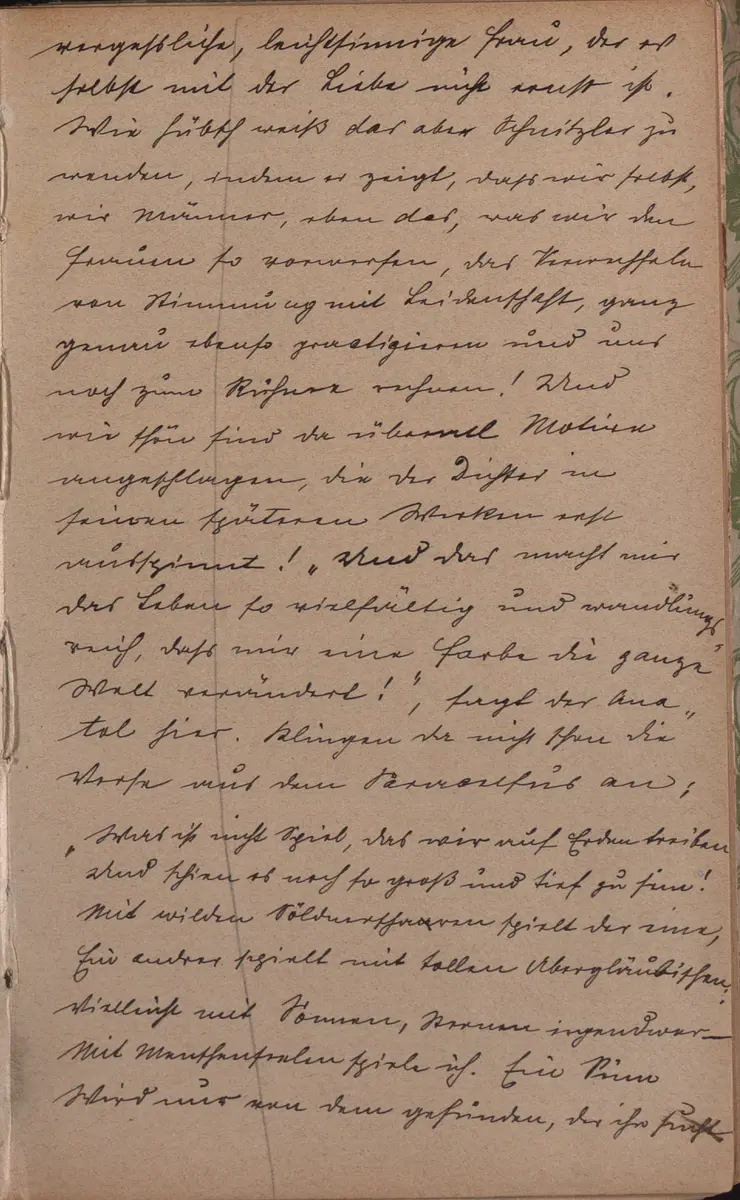 vergessliche, leichtsinnige Frau, der es
selbst mit der Liebe nicht ernst ist.
Wie hübsch weiß das aber Schnitzler zu
wenden, indem er zeigt, dass wir selbst,
wir Männer, eben das, was wir den
Frauen so vorwerfen, das Verwechseln
von Stimmung mit Leidenschaft, ganz
genau ebenso practizieren und uns
noch zum Ruhme rechnen! Und
wie schön sind da überall Motive
angeschlagen, die der Dichter in
seinen späteren Werken erst
ausspinnt! „Und das macht mir
das Leben so vielfältig und wandlungs„
reich, dass mir eine Farbe die ganze
Welt verändert!“, sagt der Ana„
tol hier. Klingen da nicht schon die
Verse aus dem Paracelsus an:
„Was ist nicht Spiel, das wir auf Erden treiben
Und schien es noch so groß und tief zu sein!
Mit wilden Söldnerscharen spielt der eine,
Ein andrer spielt mit tollen Abergläubischen.
Vielleicht mit Sonnen, Sternen irgendwer—
Mit Menschenseelen spiele ich. Ein Sinn
Wird nur von dem gefunden, der ihn sucht.